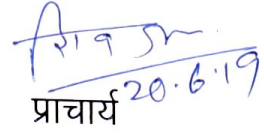 20.6.19
प्राचार्य